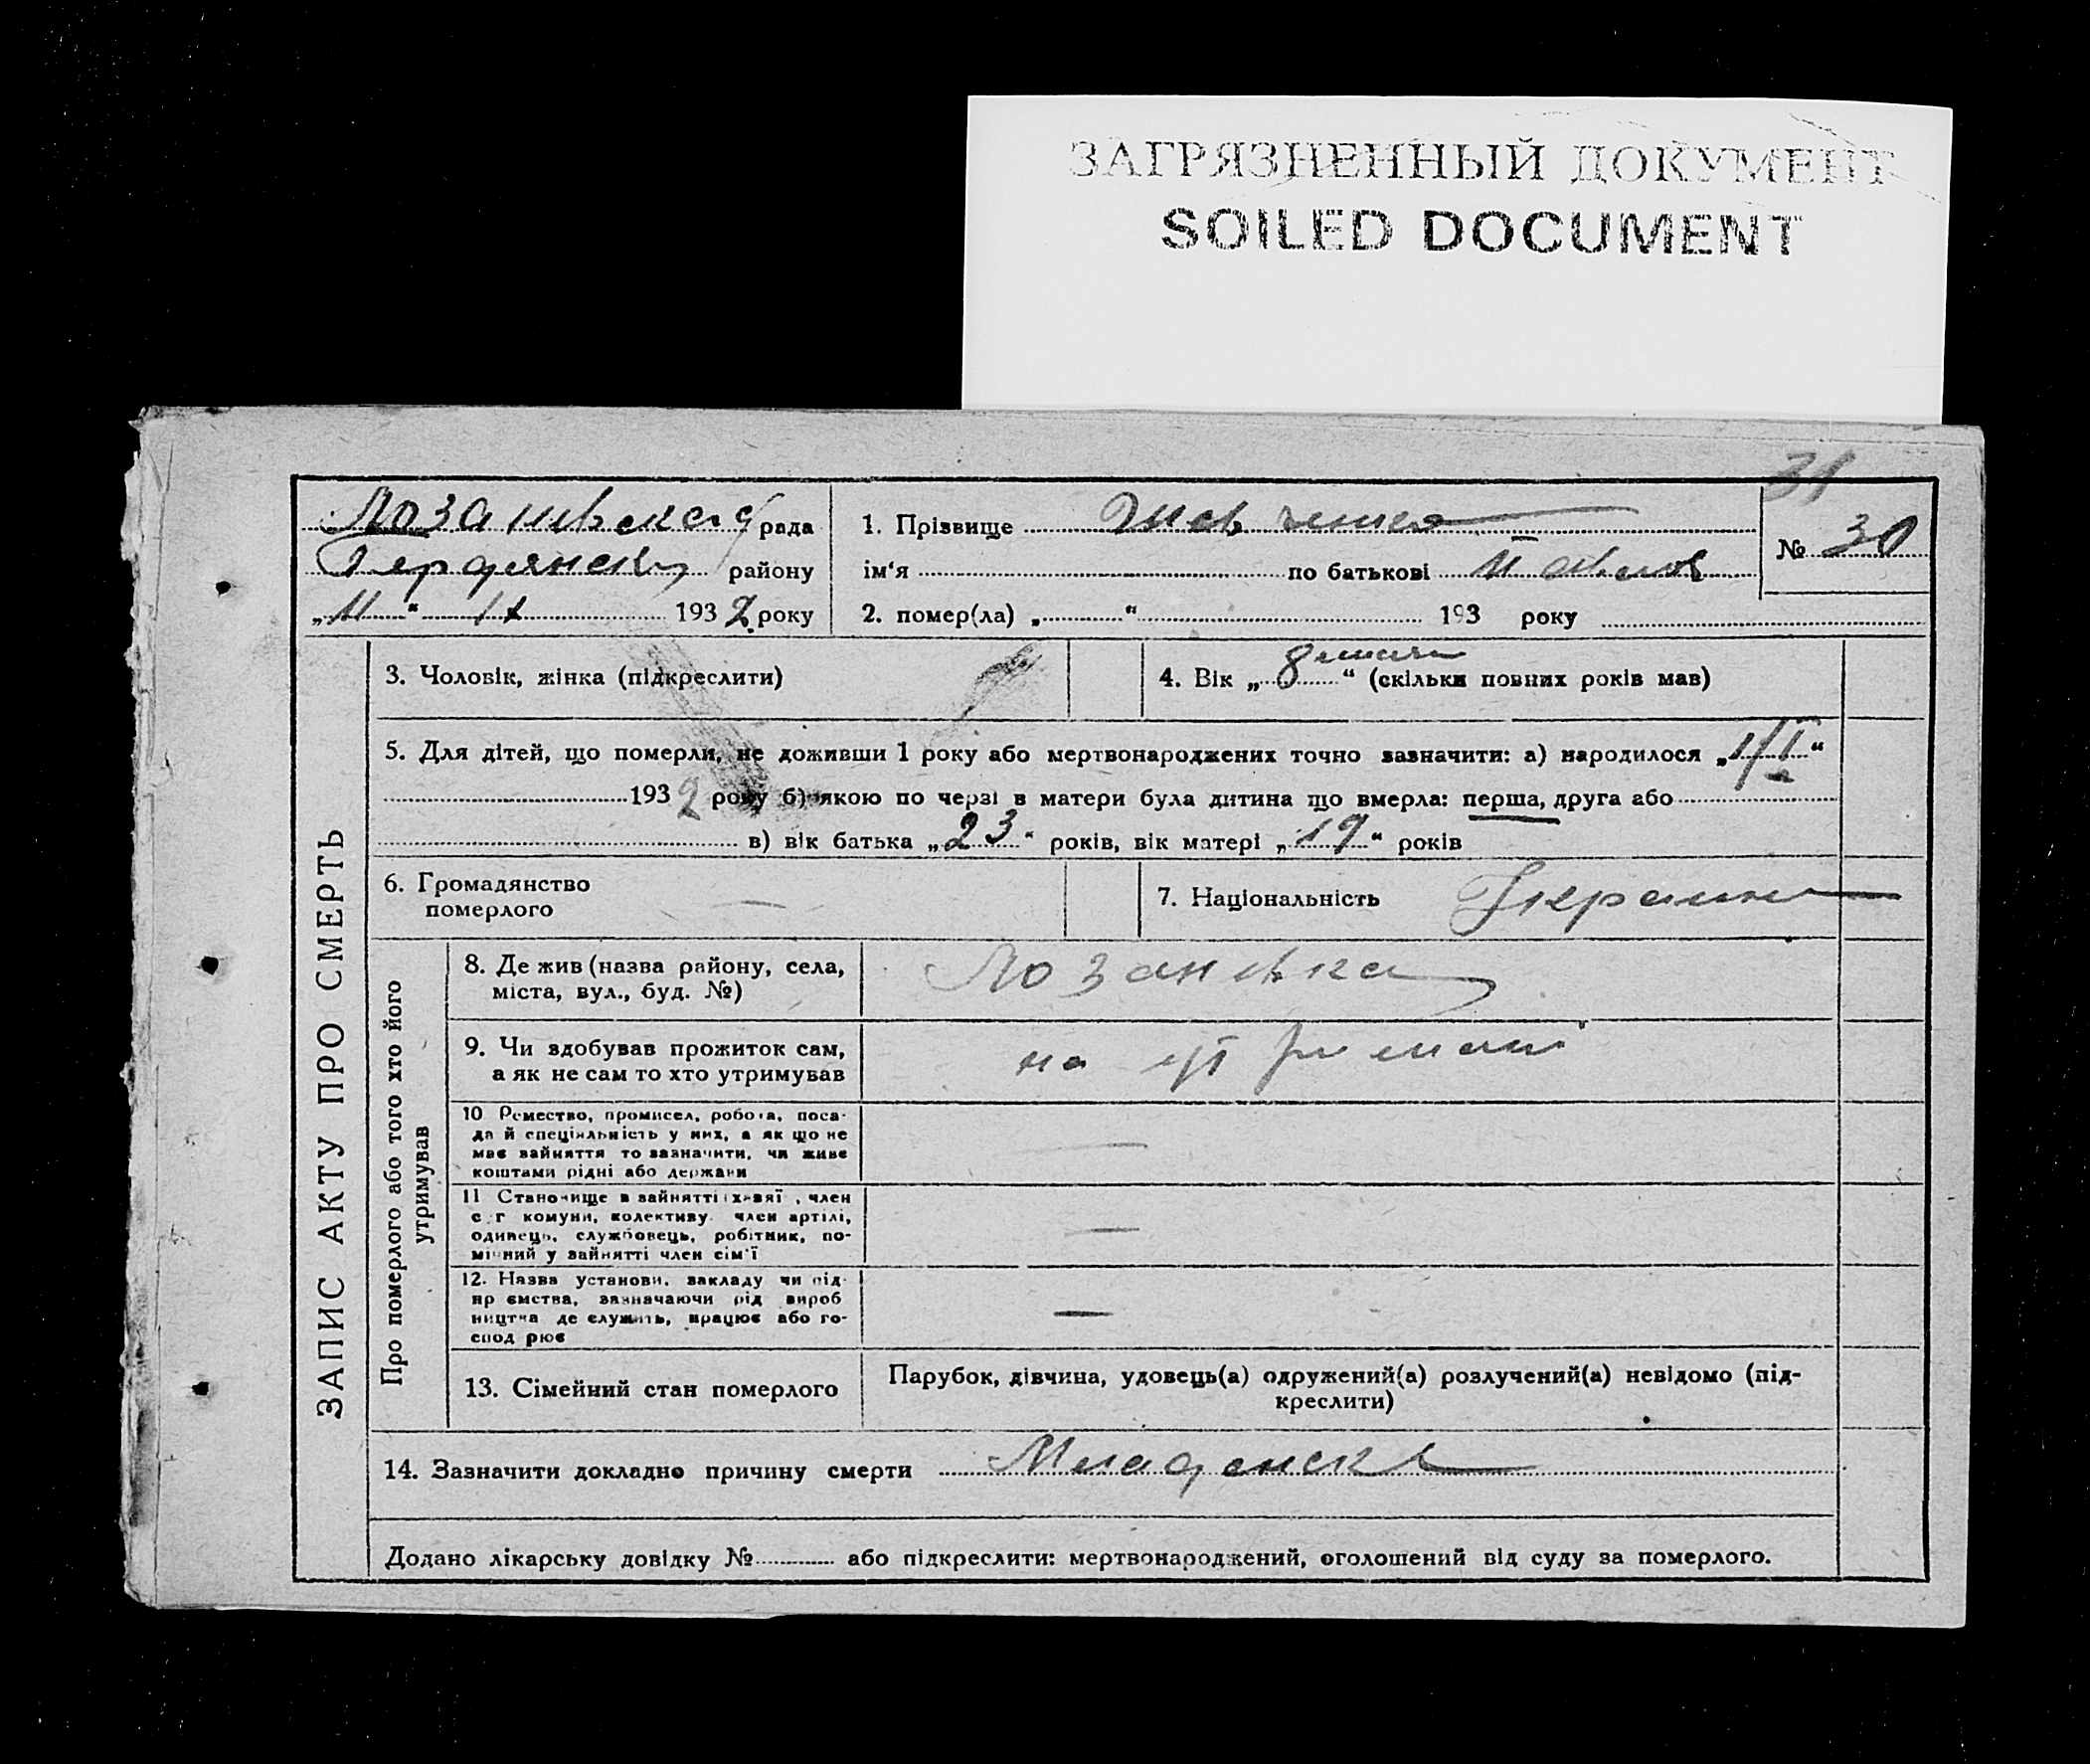 ЗАГРЯЗНЕННЫЙ ДОКУМЕНТ
SOILED DOCUMENT
31
Лозанівська рада
Бердянськ району
„11“ IX 1932 року
1. Прізвище Шевченко
ім‘я по батькові
№ 30
2. помер(ла) „ “ 193 року
3. Чоловік, жінка (підкреслити)
4. Вік „8 “ (скільки повних років мав)
5. Для дітей, що померли, не доживши 1 року або мертвонароджених точно зазначити: а) народилося „1/I“
1932 року б) якою по черзі в матери була дитина що вмерла: перша, друга або
в) вік батька „23“ років, вік матері „19“ років
6. Громадянство
померлого —
7. Національність Україн
ЗАПИС АКТУ ПРО СМЕРТЬ
Про померлого або того хто його
утримував
8. Де жив (назва району, села,
міста, вул., буд. №)
Лозанівка
9. Чи здобував прожиток сам,
а як не сам то хто утримував
на утримані
10 Ремество, промисел, робота, поса-
да й спеціяльність у них, а як що не
має зайняття то зазначити, чи живе
коштами рідні або держави
—
11 Становище в зайнятті (хазяї , член
с.г комуни, колективу. член артілі,
одинець, службовець, робітник, по-
мічний у зайнятті член сім'ї
—
12. Назва установи, закладу чи під-
пр ємства, зазначаючи рід вироб
ництва де служить, працює або го-
спод рює
—
13. Сімейний стан померлого
Парубок, дівчина, удовець(а) одружений(а) розлучений(а) невідомо (під-
креслити)
14. Зазначити докладно причину смерти Младенска
Додано лікарську довідку № або підкреслити: мертвонароджений, оголошений від суду за померлого.